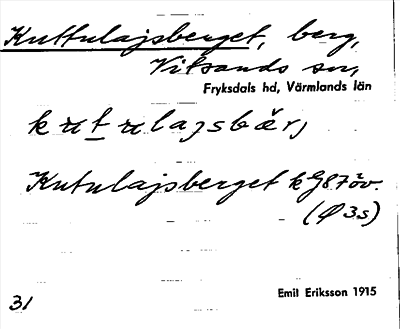 Kuttulajsberget, berg,
Vitsands sn,
Fryksdals hd, Värmlands län
Kutulajsberget k
(Ø 3s)
Emil Eriksson 1915
31